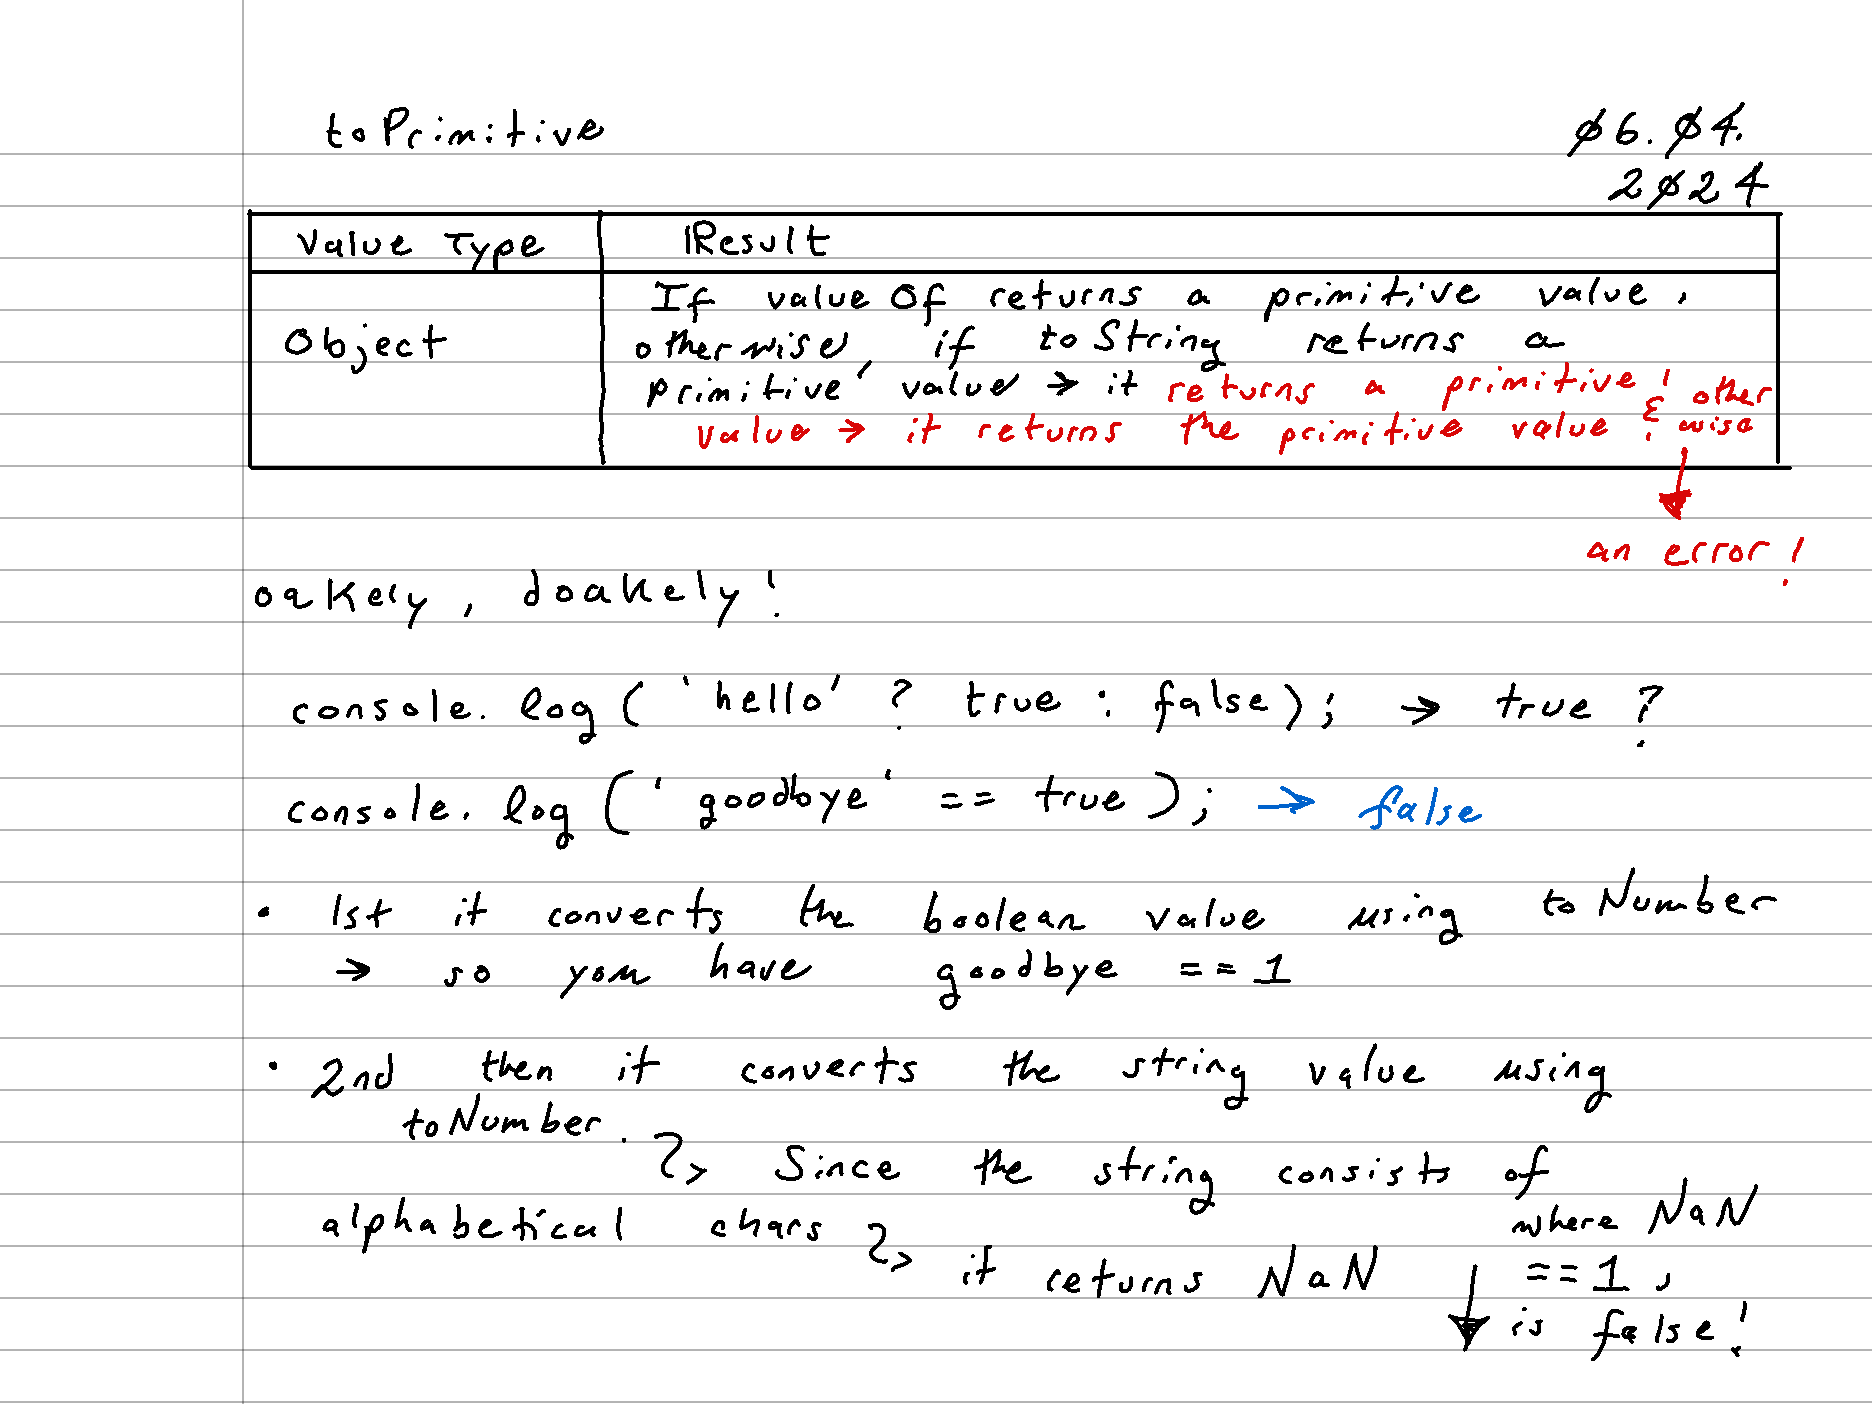 toPrimitive
06.04.
2024
Value Type
Result
Object
If value Of returns a primitive value,
otherwise, if toString returns a
primitive value → it returns a primitive!
value → it returns the primitive value & otherwise
an error!
oakely, doakely!
console.log('hello' ? true : false); → true ?
console.log('goodbye' == true); → false
• 1st it converts the boolean value using toNumber
→ so you have goodbye == 1
• 2nd then it converts the string value using
toNumber.
Since the string consists of
alphabetical chars
it returns NaN
where NaN
== 1,
is false!